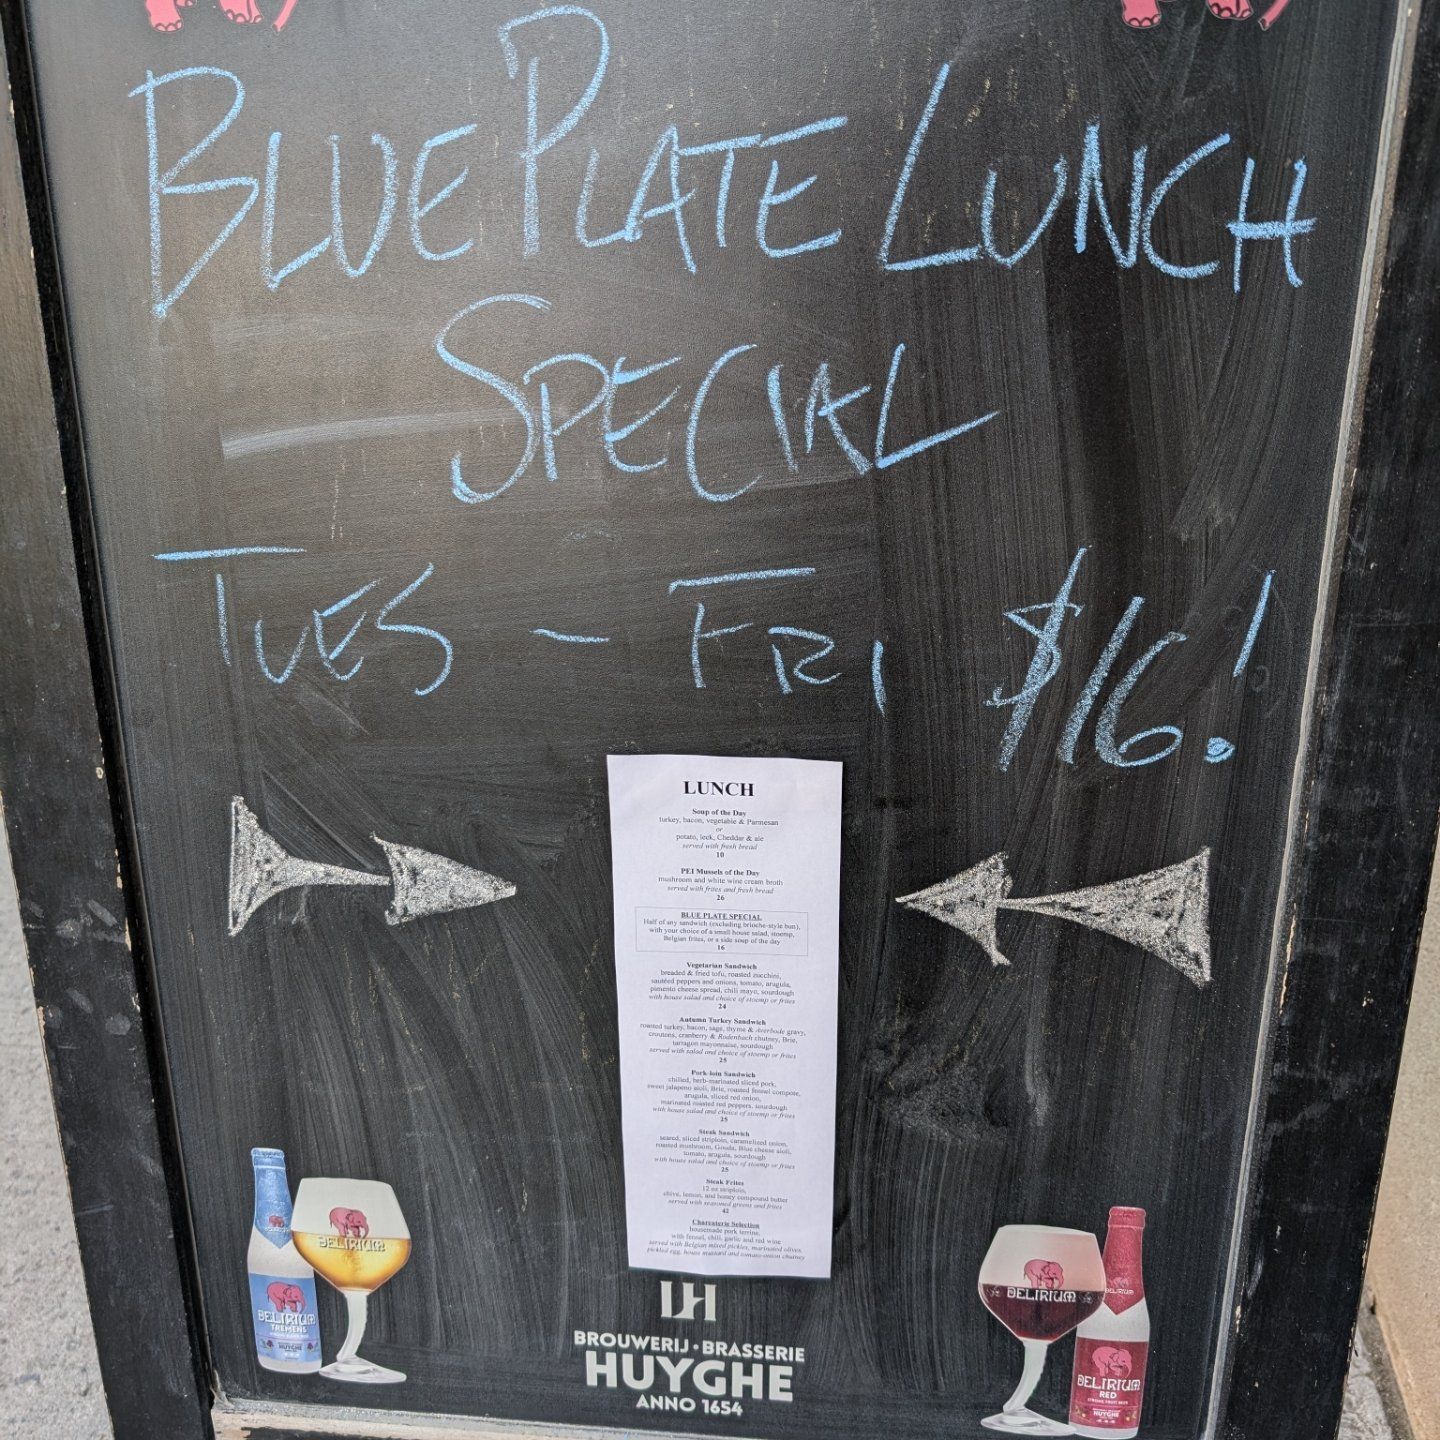 BLUE PLATE LUNCH
SPECIAL
TUES - FRI
$16!
LUNCH
Soup of the Day
turkey, bacon, vegetable & Parmesan
or
potato, leek, Cheddar & ale
served with fresh bread
10
PEI Mussels of the Day
mushroom and white wine cream broth
served with frites and fresh bread
26
BLUE PLATE SPECIAL
Half of any sandwich (excluding brioche-style bun),
with your choice of a small house salad, stoemp,
Belgian frites, or a side soup of the day
16
Vegetarian Sandwich
breaded & fried tofu, roasted zucchini,
sautéed peppers and onions, tomato, arugula,
pimento cheese spread, chili mayo, sourdough
with house salad and choice of stoemp or frites
24
Autumn Turkey Sandwich
roasted turkey, bacon, sage, thyme & Averbode gravy,
croutons, cranberry & Rodenbach chutney, Brie,
tarragon mayonnaise, sourdough
served with salad and choice of stoemp or frites
25
Pork-loin Sandwich
chilled, herb-marinated sliced pork,
sweet jalapeno aioli, Brie, roasted fennel compote,
arugula, sliced red onion,
marinated roasted red peppers, sourdough
with house salad and choice of stoemp or frites
25
Steak Sandwich
seared, sliced striploin, caramelized onion,
roasted mushroom, Gouda, Blue cheese aioli,
tomato, arugula, sourdough
with house salad and choice of stoemp or frites
25
Steak Frites
12 oz striploin,
chive, lemon, and honey compound butter
served with seasoned greens and frites
42
Charcuterie Selection
housemade pork terrine,
with fennel, chili, garlic and red wine
served with Belgian mixed pickles, marinated olives,
pickled egg, house mustard and tomato-onion chutney
DELIRIUM
DELIRIUM
TREMENS
HUYGHE
DELIRIUM
DELIRIUM
DELIRIUM
RED
STRONG FRUIT BEER
HUYGHE
LH
BROUWERIJ · BRASSERIE
HUYGHE
ANNO 1654